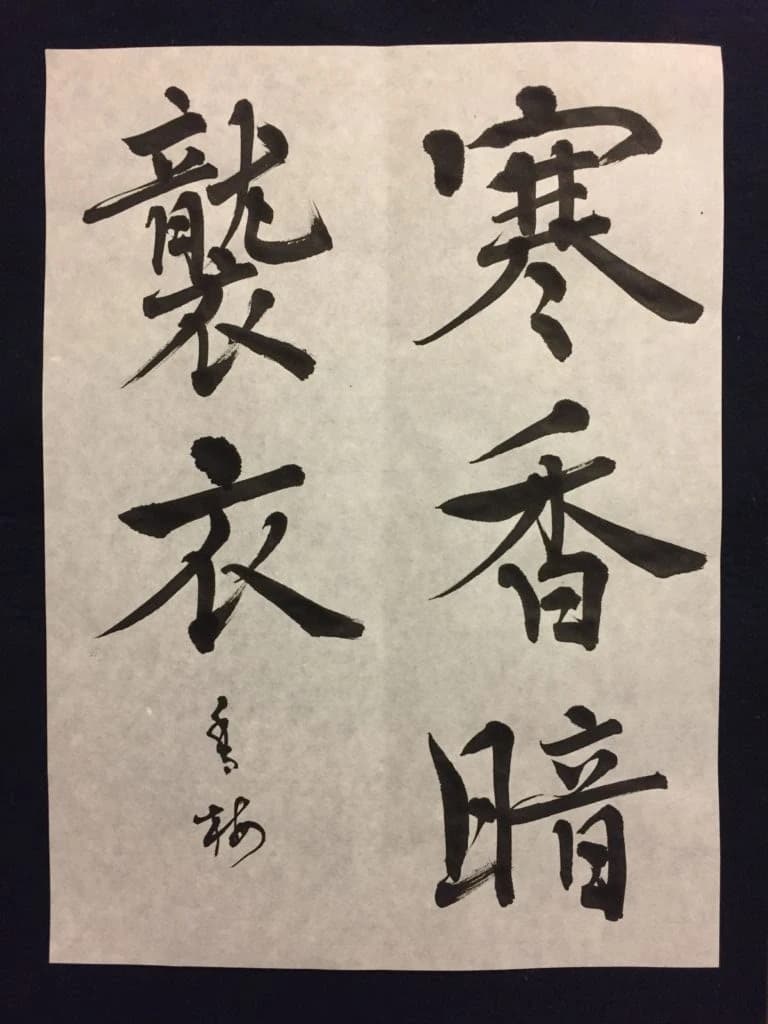 寒香暗
襲衣
香梅